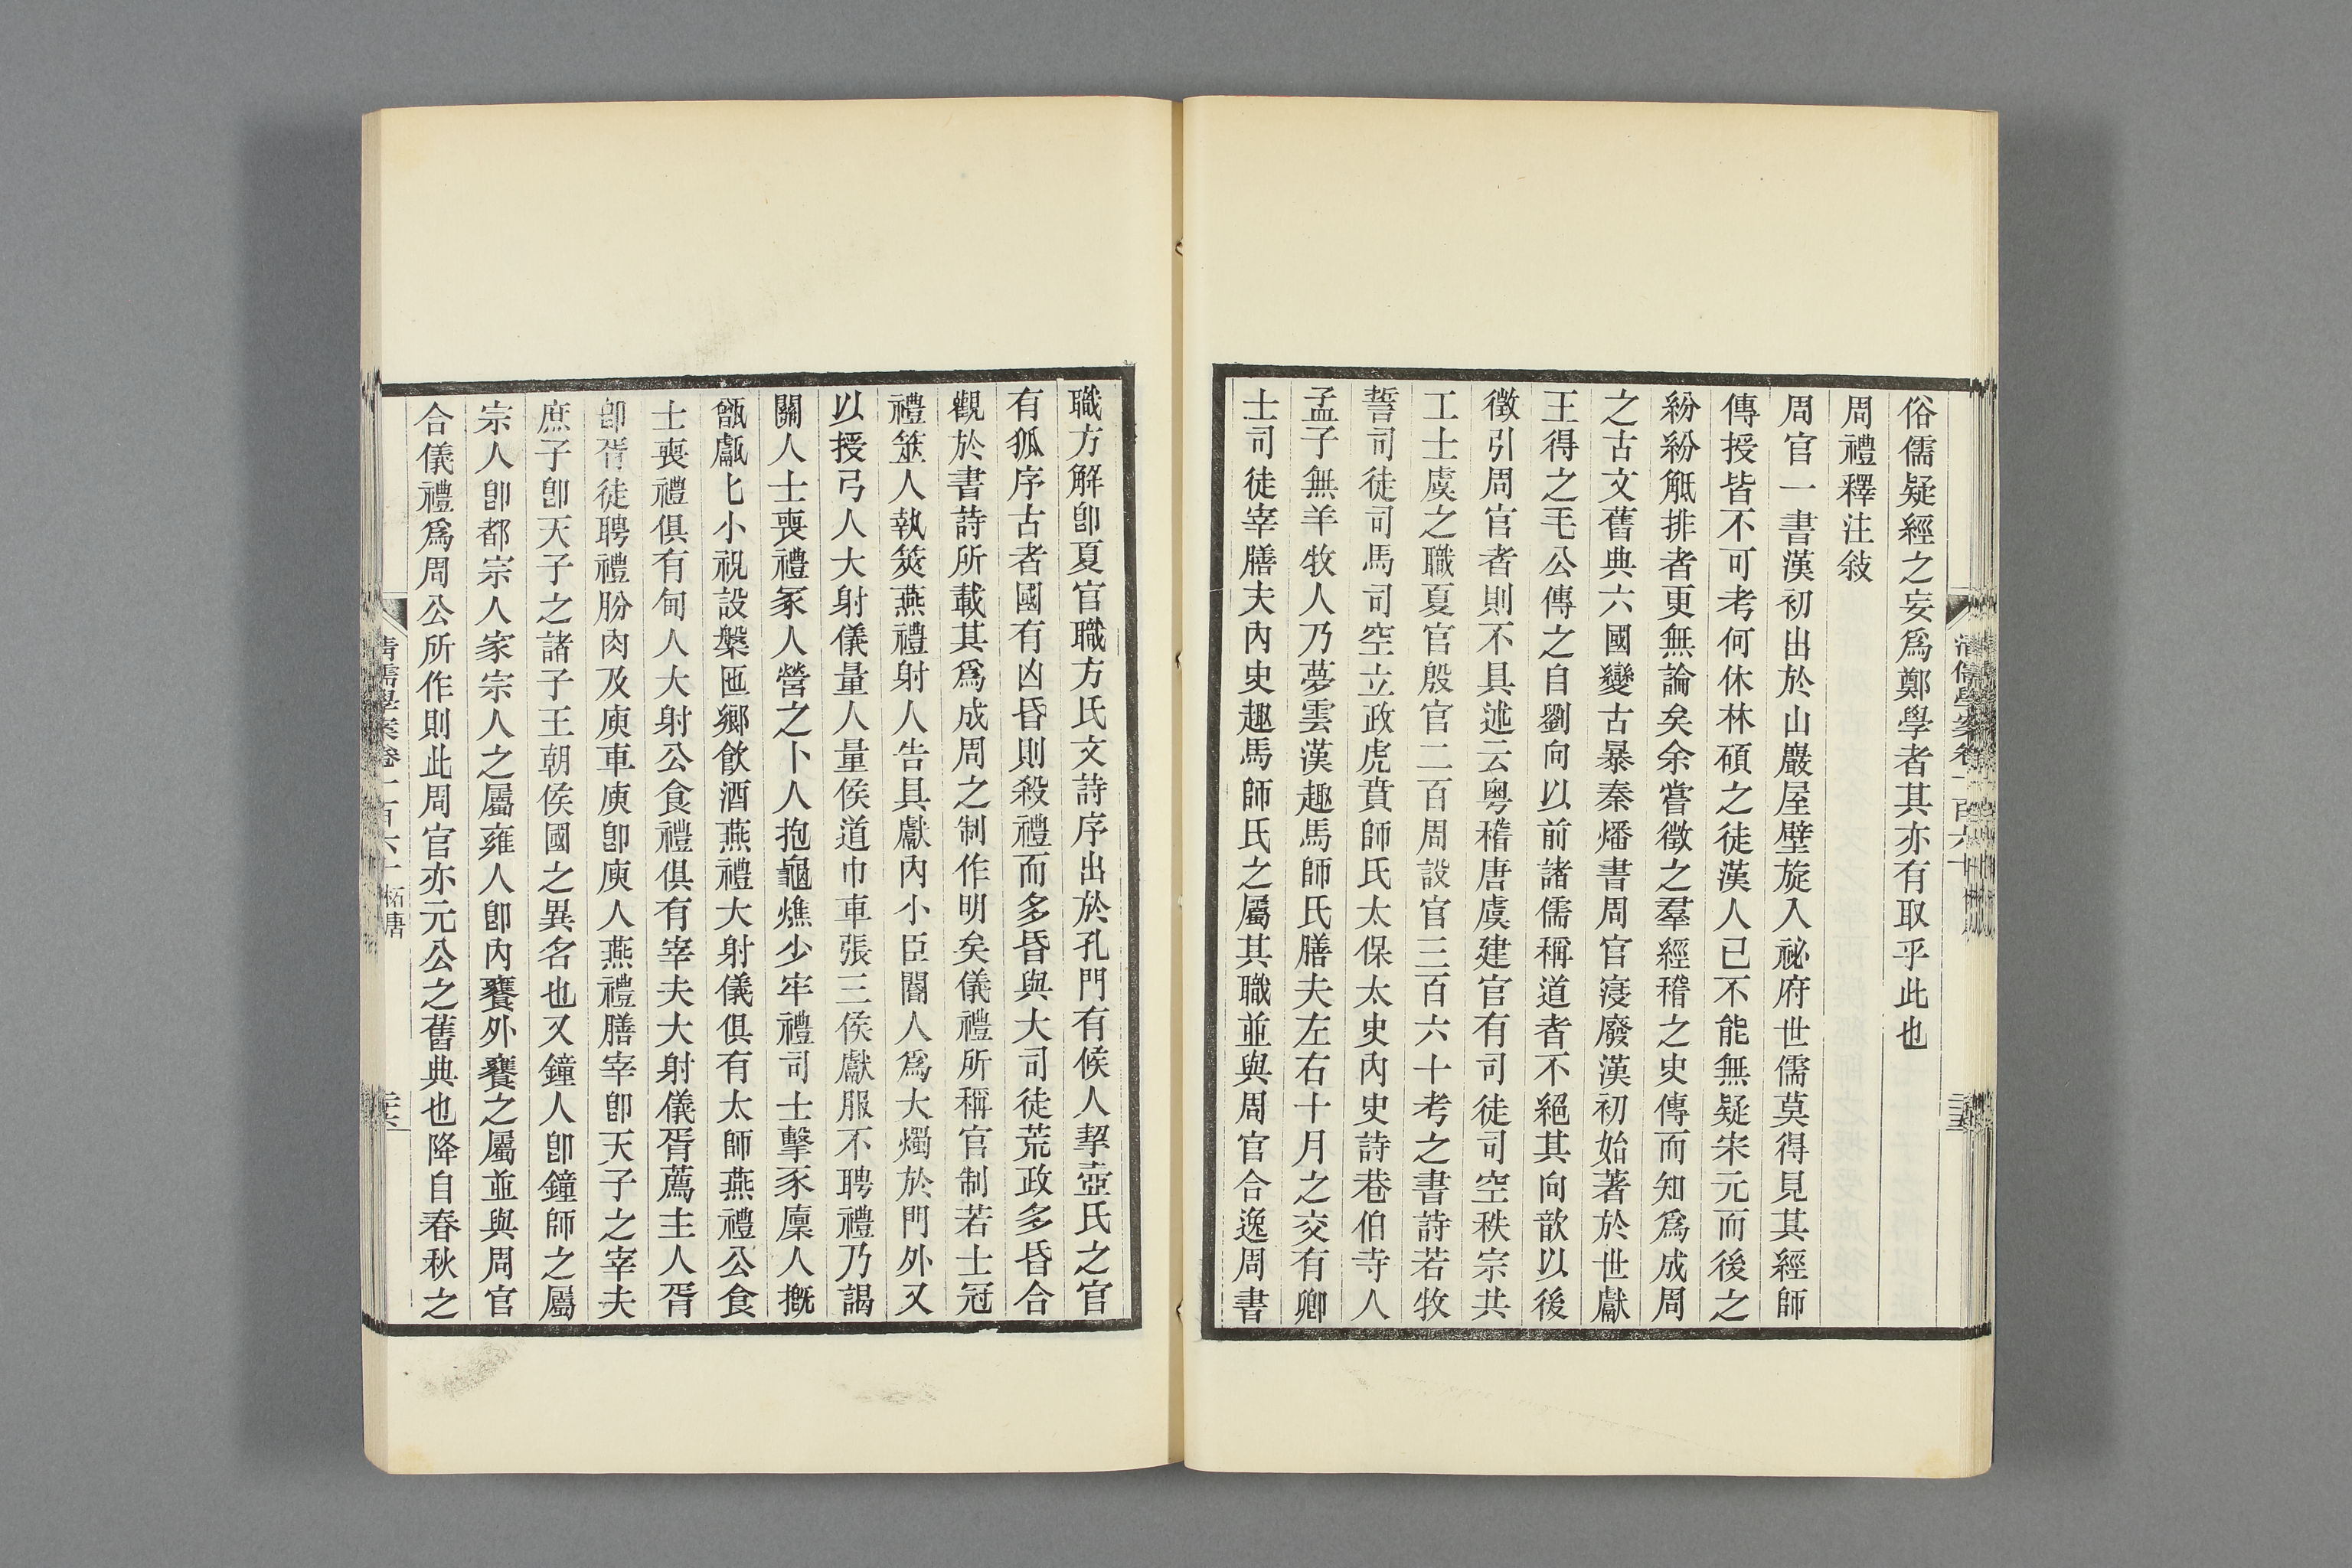 俗儒疑經之妄爲鄭學者其亦有取乎此也
周禮釋注敍
周官一書漢初出於山巖屋壁旋入祕府世儒莫得見其經師
傳授皆不可考何休林碩之徒漢人已不能無疑宋元而後之
紛紛觝排者更無論矣余嘗徵之羣經稽之史傳而知爲成周
之古文舊典六國變古暴秦燔書周官寖廢漢初始著於世獻
王得之毛公傳之自劉向以前諸儒稱道者不絕其向歆以後
徵引周官者則不具述云粵稽唐虞建官有司徒司空秩宗共
工士虞之職夏官殷官二百周設官三百六十考之書詩若牧
誓司徒司馬司空立政虎賁師氏太保太史內史詩巷伯寺人
孟子無羊牧人乃夢雲漢趣馬師氏膳夫左右十月之交有卿
士司徒宰膳夫內史趣馬師氏之屬其職並與周官合逸周書
清儒學案卷一百六十
三五
職方解卽夏官職方氏文詩序出於孔門有候人挈壺氏之官
有狐序古者國有凶昏則殺禮而多昏與大司徒荒政多昏合
觀於書詩所載其爲成周之制作明矣儀禮所稱官制若士冠
禮筮人執筴燕禮射人告具獻內小臣閽人爲大燭於門外又
以授弓人大射儀量人量侯道巾車張三侯獻服不聘禮乃謁
關人士喪禮冢人營之卜人抱龜燋少牢禮司士擊豕廩人摡
甑甗匕小祝設槃匜鄉飲酒燕禮大射儀俱有太師燕禮公食
士喪禮俱有甸人大射公食禮俱有宰夫大射儀胥薦主人胥
卽胥徒聘禮肦肉及廋車廋卽廋人燕禮膳宰卽天子之宰夫
庶子卽天子之諸子王朝侯國之異名也又鐘人卽鐘師之屬
宗人卽都宗人家宗人之屬雍人卽內饔外饔之屬並與周官
合儀禮爲周公所作則此周官亦元公之舊典也降自春秋之
清儒學案卷一百六十 柘唐
三六